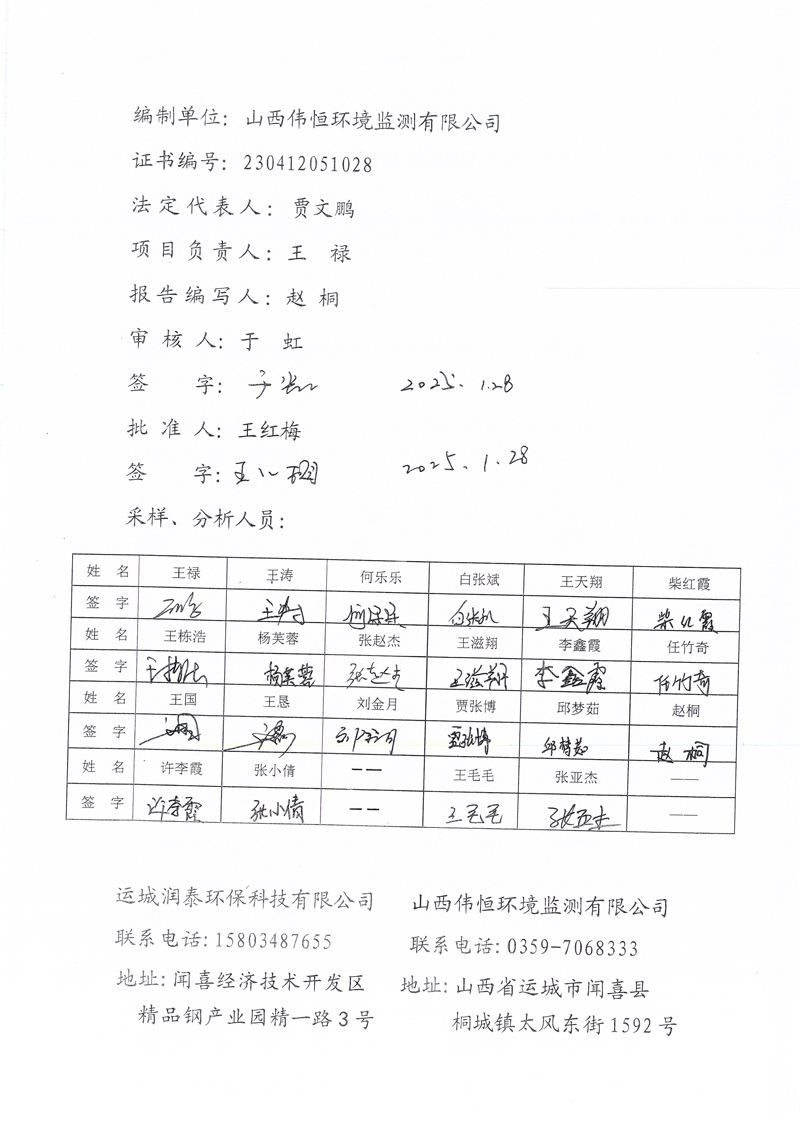 编制单位：山西伟恒环境监测有限公司
证书编号：230412051028
法定代表人：贾文鹏
项目负责人：王 禄
报告编写人：赵 桐
审 核 人：于 虹
签 字：于虹 2025.1.28
批 准 人：王红梅
签 字：王 2025.1.28
采样、分析人员：
姓 名 王禄 王涛 何乐乐 白张斌 王天翔 柴红霞
签 字 王涛 何乐乐 王天翔 柴红霞
姓 名 王栋浩 杨芙蓉 张赵杰 王滋翔 李鑫霞 任竹奇
签 字 王栋浩 杨芙蓉 王滋翔 李鑫霞 任竹奇
姓 名 王国 王恳 刘金月 贾张博 邱梦茹 赵桐
签 字 贾张博 邱梦茹 赵桐
姓 名 许李霞 张小倩 —— 王毛毛 张亚杰 ——
签 字 许李霞 张小倩 —— 王毛毛 张亚杰 ——
运城润泰环保科技有限公司 山西伟恒环境监测有限公司
联系电话：15803487655 联系电话：0359-7068333
地址：闻喜经济技术开发区 地址：山西省运城市闻喜县
精品钢产业园精一路3号 桐城镇太风东街1592号